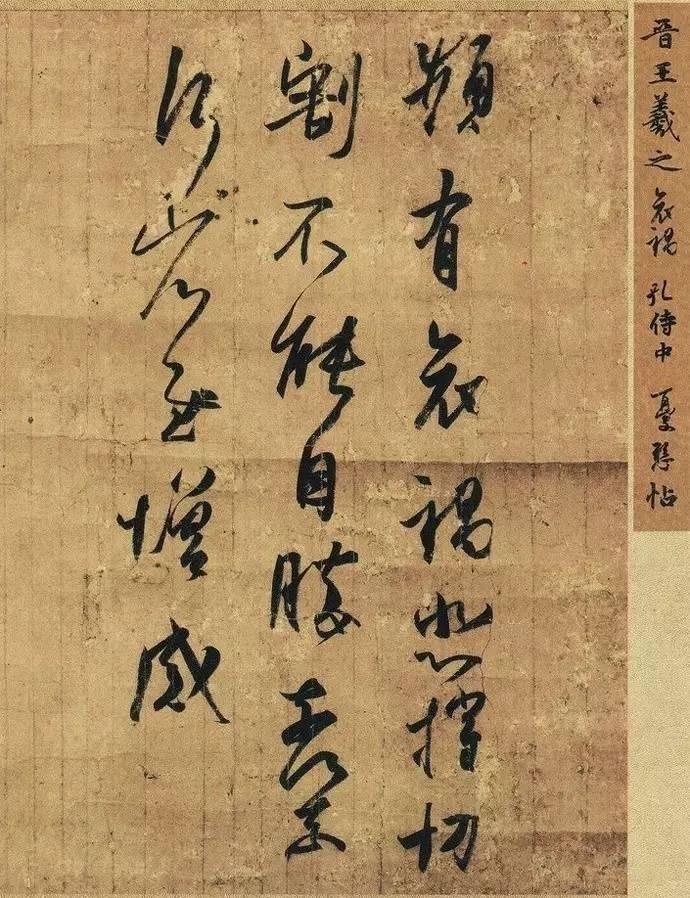 晉王羲之 哀禍 孔侍中 憂懸帖
頻有哀禍悲摧切
割不能自勝奈何奈
何省慰增感